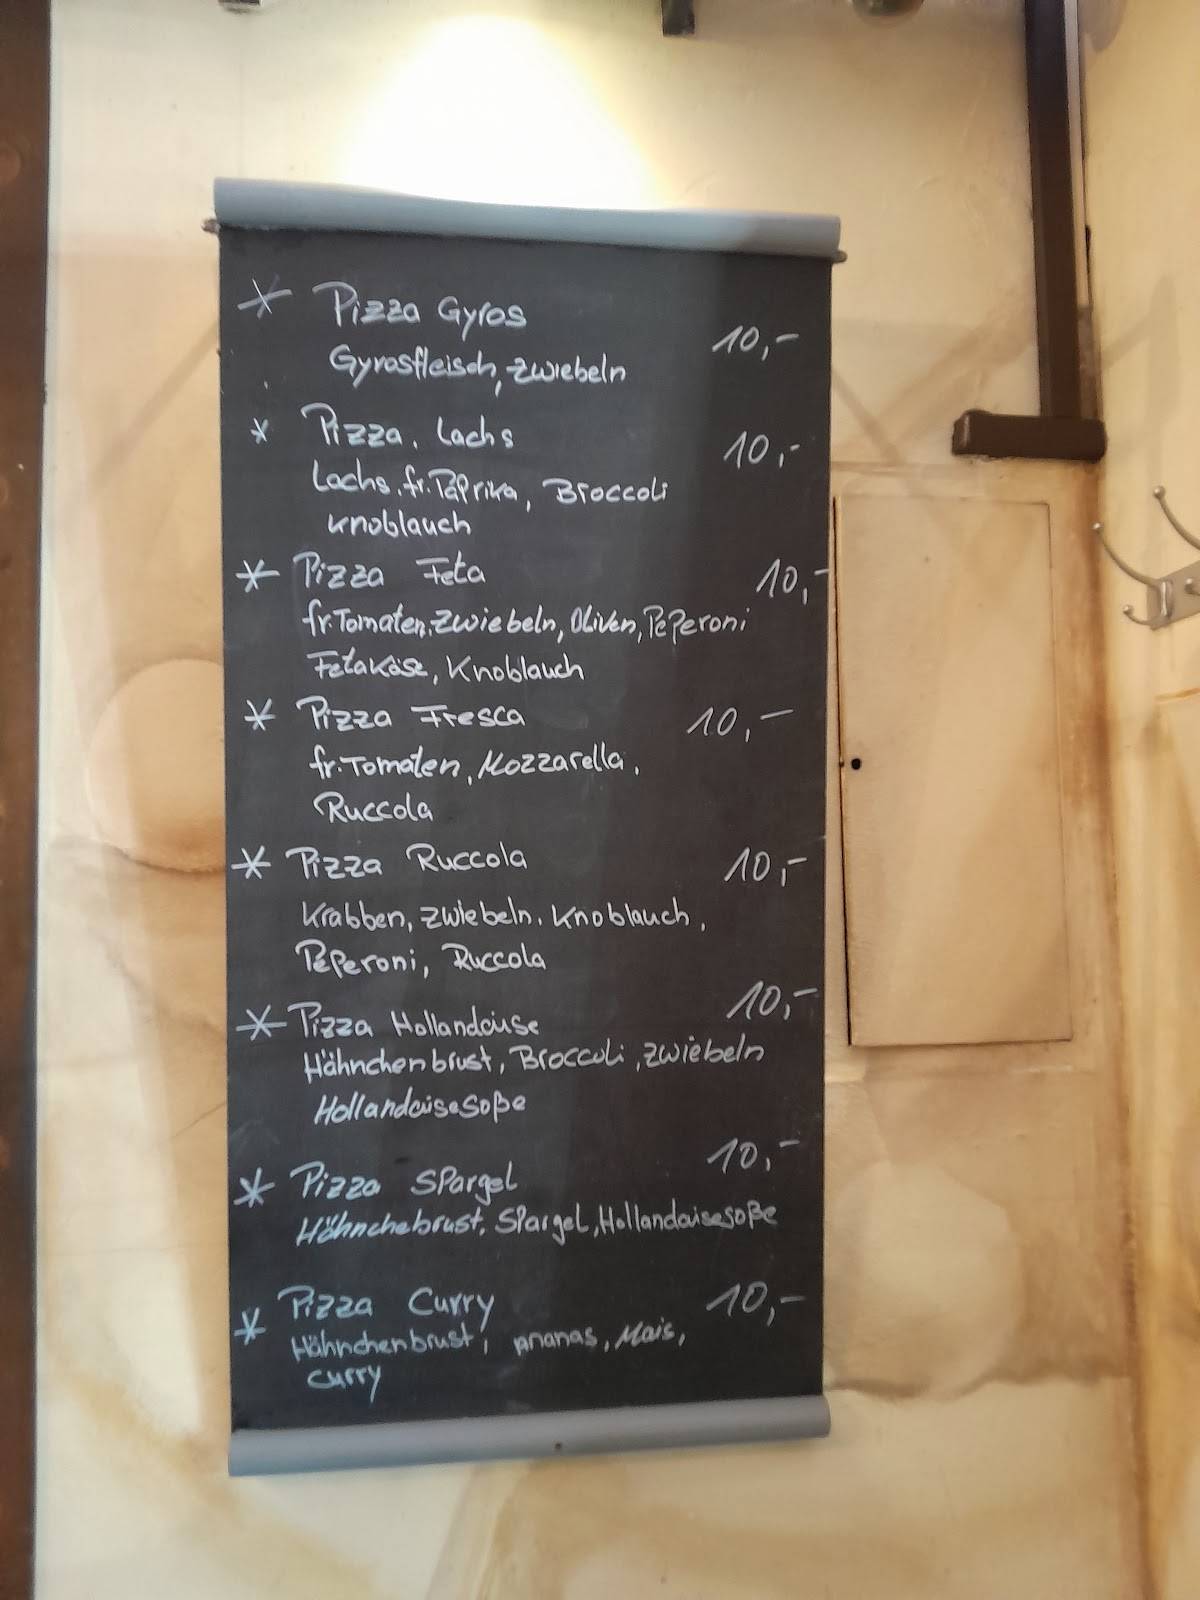 * Pizza Gyros 10,-
Gyrosfleisch, Zwiebeln
* Pizza. Lachs 10,-
Lachs, fr. Paprika, Broccoli
Knoblauch
* Pizza Feta 10,-
fr. Tomaten, Zwiebeln, Oliven, PePeroni
Fetakäse, Knoblauch
* Pizza Fresca 10,-
fr. Tomaten, Mozzarella,
Ruccola
* Pizza Ruccola 10,-
Krabben, Zwiebeln, Knoblauch,
PePeroni, Ruccola
* Pizza Hollandaise 10,-
Hähnchenbrust, Broccoli, Zwiebeln
Hollandaisesoße
* Pizza SPargel 10,-
Hähnchebrust, SPargel, Hollandaisesoße
* Pizza Curry 10,-
Hähnchenbrust, Ananas, Mais,
Curry